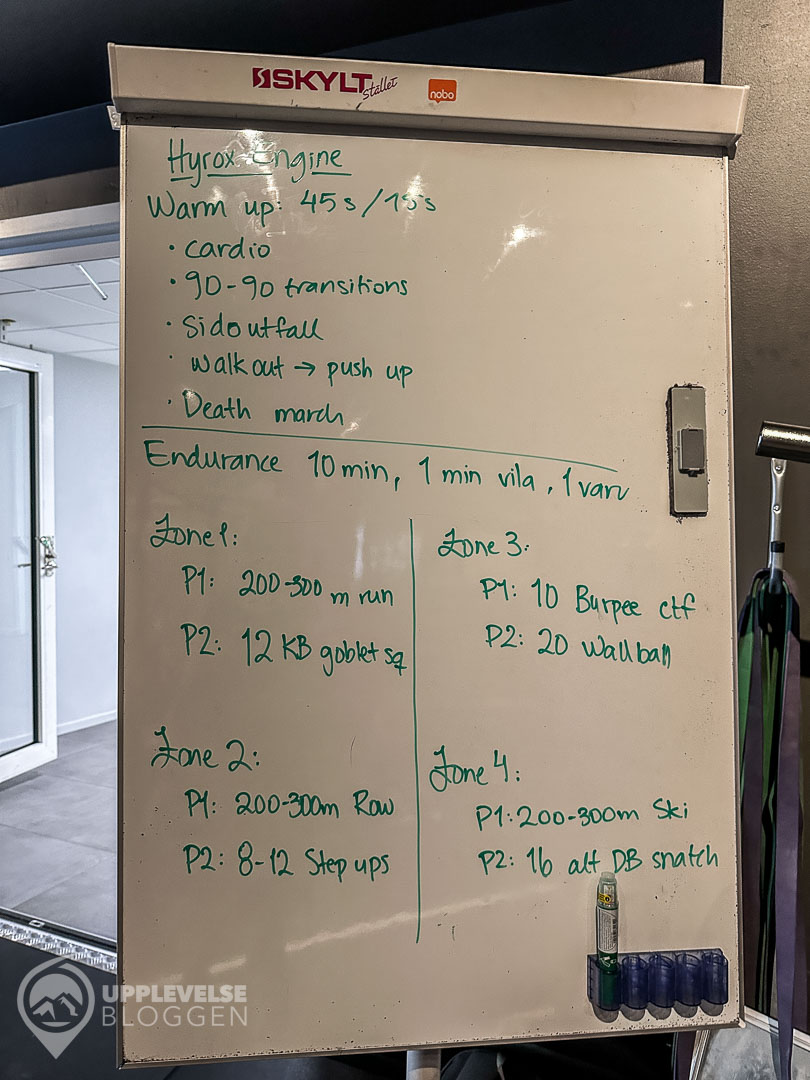 SKYLT
stället
nobo
Hyrox Engine
Warm up: 45s/15s
• cardio
• 90-90 transitions
• Sidoutfall
• Walkout → push up
• Death march
Endurance 10 min, 1 min vila, 1 varv
Zone 1:
P1: 200-300 m run
P2: 12 KB goblet sq
Zone 2:
P1: 200-300m Row
P2: 8-12 Step ups
Zone 3:
P1: 10 Burpee ctf
P2: 20 Wallball
Zone 4:
P1: 200-300m Ski
P2: 16 alt DB snatch
UPPLEVELSE
BLOGGEN